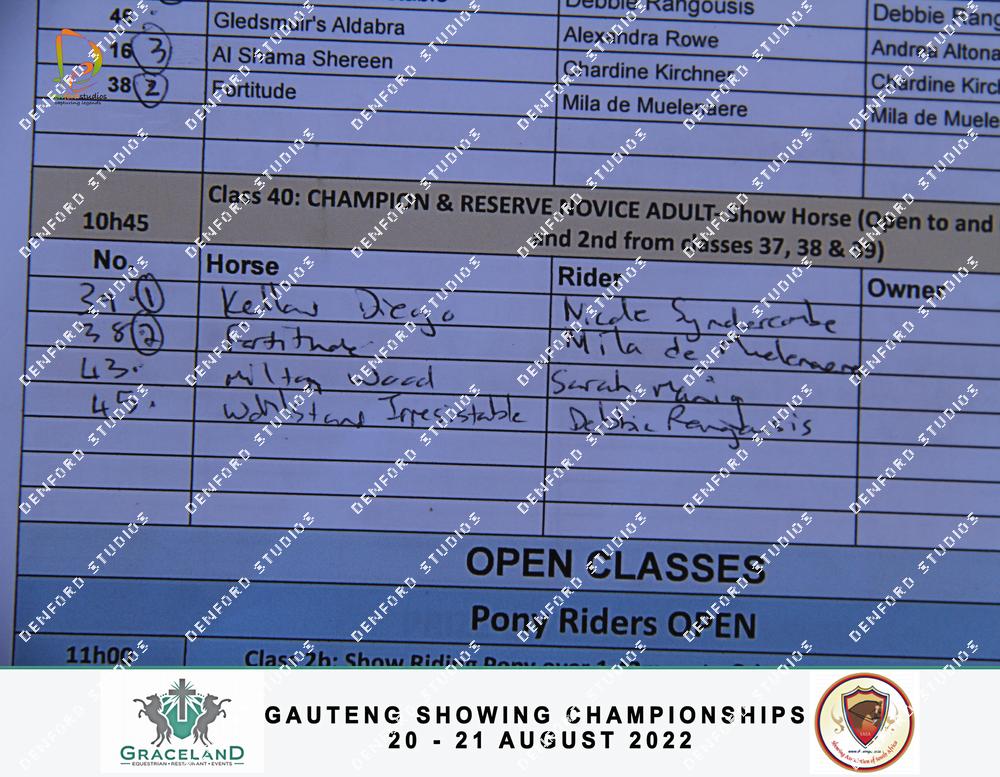 Debbie Rangousis Debbie Rang
46 Gledsmuir's Aldabra Alexandra Rowe Andrea Altona
16 3 Al Shama Shereen Chardine Kirchner Chardine Kirch
38 2 Fortitude Mila de Muelenaere Mila de Muele
10h45 Class 40: CHAMPION & RESERVE NOVICE ADULT- Show Horse (Open to and
and 2nd from classes 37, 38 & 39)
No. Horse Rider Owner
1 Kellaw Diego Nicole Syndercombe
38 2 Fortitude Mila de Muelenaere
43. Milton Wood Sarah
45. Irresistable Debbie Rangousis
OPEN CLASSES
Pony Riders OPEN
11h00 Class 2h: Show Riding Pony over
GRACELAND
EQUESTRIAN • RESTAURANT • EVENTS
GAUTENG SHOWING CHAMPIONSHIPS
20 - 21 AUGUST 2022
DENFORD STUDIOS
studios
capturing legends